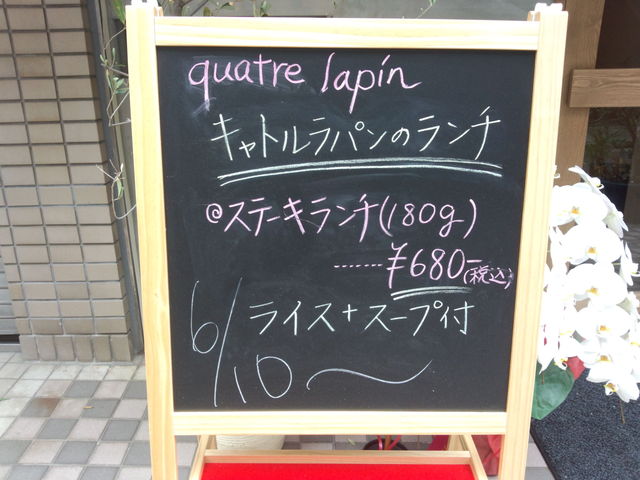 quatre lapin
キャトルラパンのランチ
@ステーキランチ(180g)
------¥680-(税込)
ライス+スープ付
6/10〜